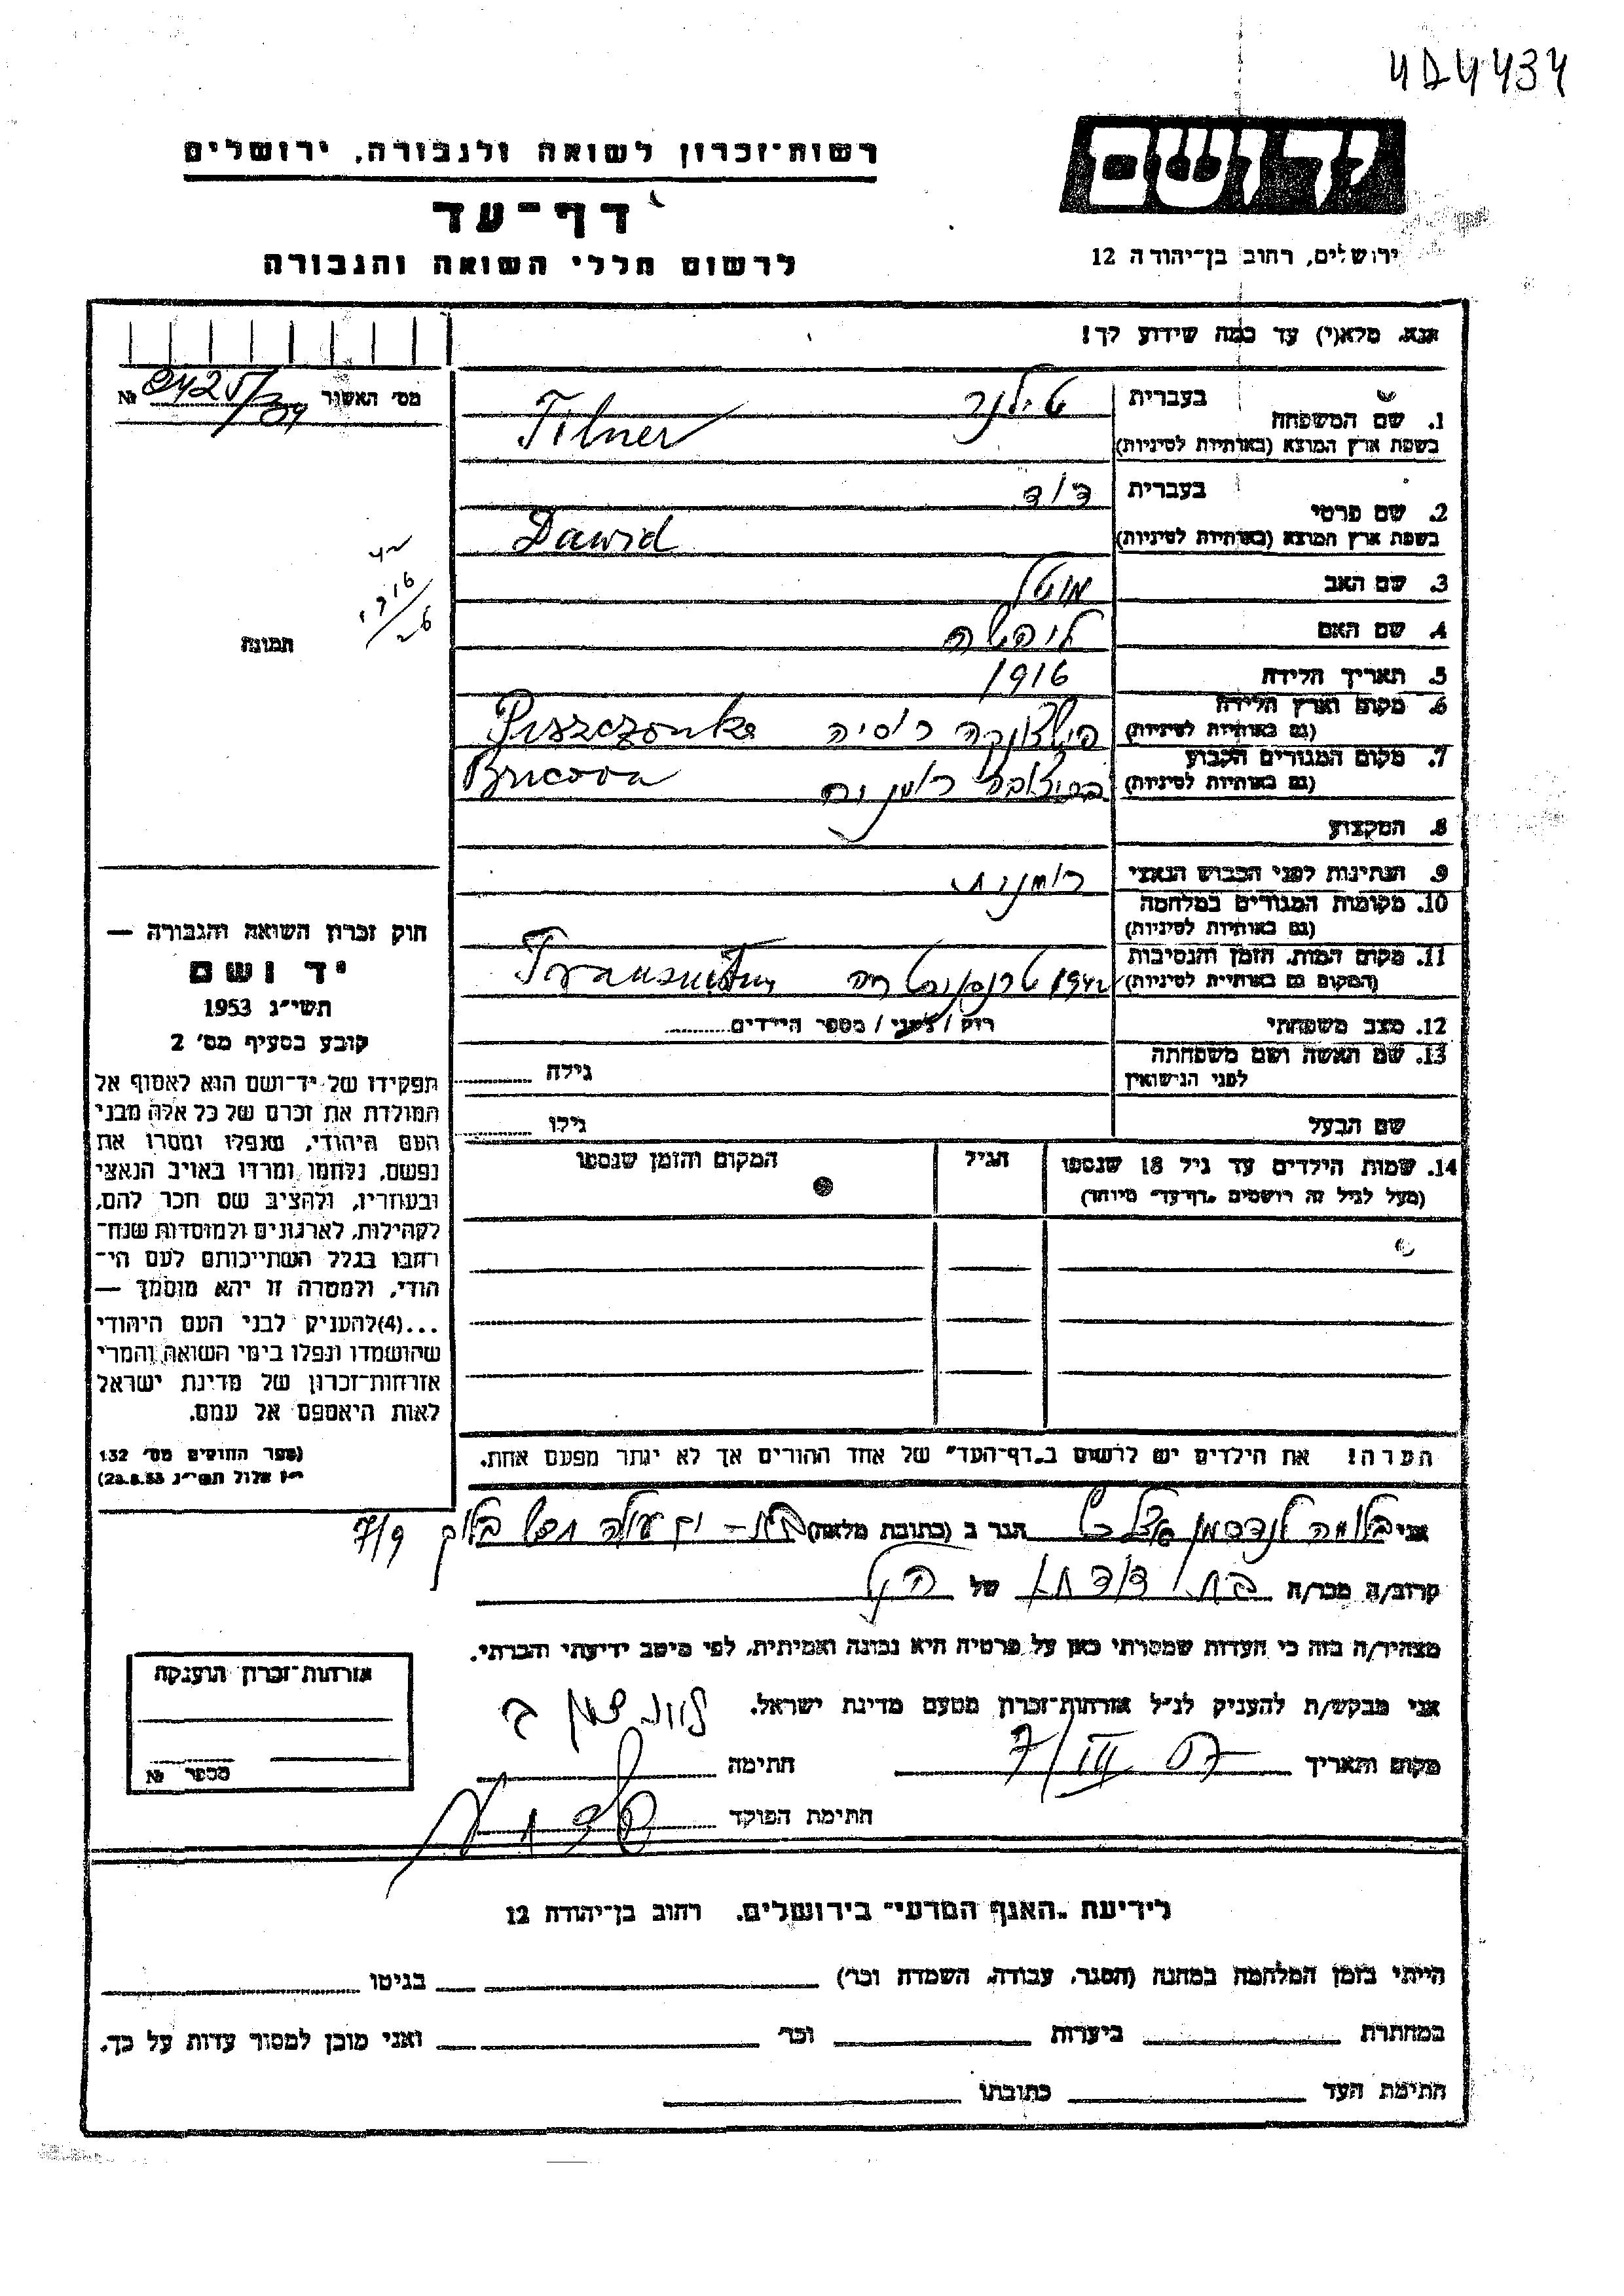 4D4434
יד ושם
רשות־זכרון לשואה ולגבורה, ירושלים
דף־עד
לרשום חללי השואה והגבורה
ירושלים, רחוב בן־יהודה 12
אנא, מלא(י) עד כמה שידוע לך!
מס׳ האשור №
1. שם המשפחה בעברית טילנר
בשפת ארץ המוצא (באותיות לטיניות) Tilner
2. שם פרטי בעברית דוד
בשפת ארץ המוצא (באותיות לטיניות) Dawid
3. שם האב מוטל
4. שם האם
5. תאריך הלידה 1916
6. מקום וארץ הלידה
(גם באותיות לטיניות) פישצונקה רוסיה Piszczonka
7. מקום המגורים הקבוע
(גם באותיות לטיניות) בריצ'בה רומניה Bricova
8. המקצוע
9. הנתינות לפני הכבוש הנאצי רומנית
10. מקומות המגורים במלחמה
(גם באותיות לטיניות)
11. מקום המות, הזמן והנסיבות
(המקום גם באותיות לטיניות) 1942 טרנסניסטריה
12. מצב משפחתי רוק / נשוי / מספר הילדים
13. שם האשה ושם משפחתה
לפני הנישואין גילה
שם הבעל גילו
14. שמות הילדים עד גיל 18 שנספו הגיל המקום והזמן שנספו
(מעל לגיל זה רושמים „דף־עד״ מיוחד)
תמונה
חוק זכרון השואה והגבורה —
יד ושם
תשי״ג 1953
קובע בסעיף מס׳ 2
תפקידו של יד־ושם הוא לאסוף אל
המולדת את זכרם של כל אלה מבני
העם היהודי, שנפלו ומסרו את
נפשם, נלחמו ומרדו באויב הנאצי
ובעוזריו, ולהציב שם וזכר להם,
לקהילות, לארגונים ולמוסדות שנח־
רבו בגלל השתייכותם לעם הי־
הודי, ולמטרה זו יהא מוסמך —
...(4)להעניק לבני העם היהודי
שהושמדו ונפלו בימי השואה והמרי
אזרחות־זכרון של מדינת ישראל
לאות היאספם אל עמם.
(ספר החוקים מס׳ 132
י״ז אלול תשי״ג 28.8.53)
הערה! את הילדים יש לרשום ב„דף־העד״ של אחד ההורים אך לא יותר מפעם אחת.
אני בלומה לנדסמן הגר ב (כתובת מלאה) 7/9
קרוב/ה מכר/ה בת דודתו של הנ"ל
מצהיר/ה בזה כי העדות שמסרתי כאן על פרטיה היא נכונה ואמיתית, לפי מיטב ידיעתי והכרתי.
אני מבקש/ת להעניק לנ״ל אזרחות־זכרון מטעם מדינת ישראל.
מקום ותאריך 7/III 57 חתימה
חתימת הפוקד
אזרחות־זכרון הוענקה
מספר №
לידיעת „האגף המדעי״ בירושלים. רחוב בן־יהודה 12
הייתי בזמן המלחמה במחנה (הסגר, עבודה, השמדה וכר׳) בגיטו
במחתרת ביערות וכר׳ ואני מוכן למסור עדות על כך.
חתימת העד כתובתו